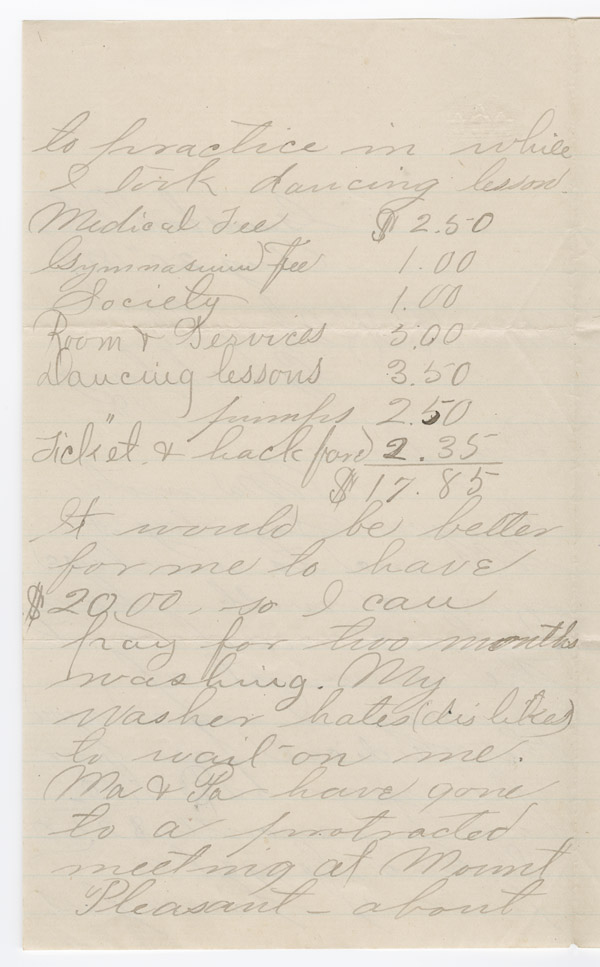 to practice in while
I took dancing lesson.
Medical Fee $ 2.50
Gymnasium Fee 1.00
Society 1.00
Room & Services 5.00
Dancing lessons 3.50
" pumps 2.50
Ticket & hack fare 2.35
$ 17.85
It would be better
for me to have
$20.00, so I can
pay for two months
washing. My
washer hates (dislikes)
to wait on me.
Ma & Pa have gone
to a protracted
meeting at Mount
Pleasant – about